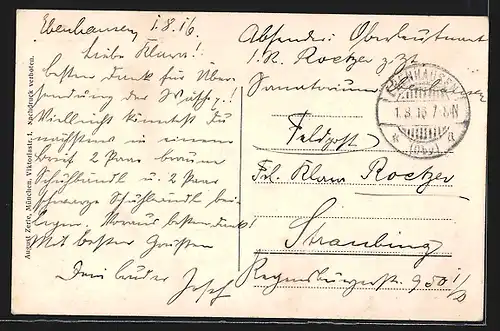 Ebenhausen, 1.8.16.
Liebe Klara!
besten Dank für Über-
sendung der Wäsche!
Vielleicht könntest Du
nächstens in einem
Brief 2 Paar braune
Schuhbandl u. 2 Paar
schwarze Schuhbandl bei-
legen. Voraus besten Dank!
Mit besten Grüßen
Dein Bruder Josef
August Zerle, München, Viktoriastr. 1. Nachdruck verboten.
Absender: Oberleutnant
d. R. Roetzer z. Zt.
Sanatorium Ebenhausen
EBENHAUSEN
1.8.16 7-8N
(Oby)
Feldpost
Frl. Klara Roetzer
Straubing
Regensburgerstr.